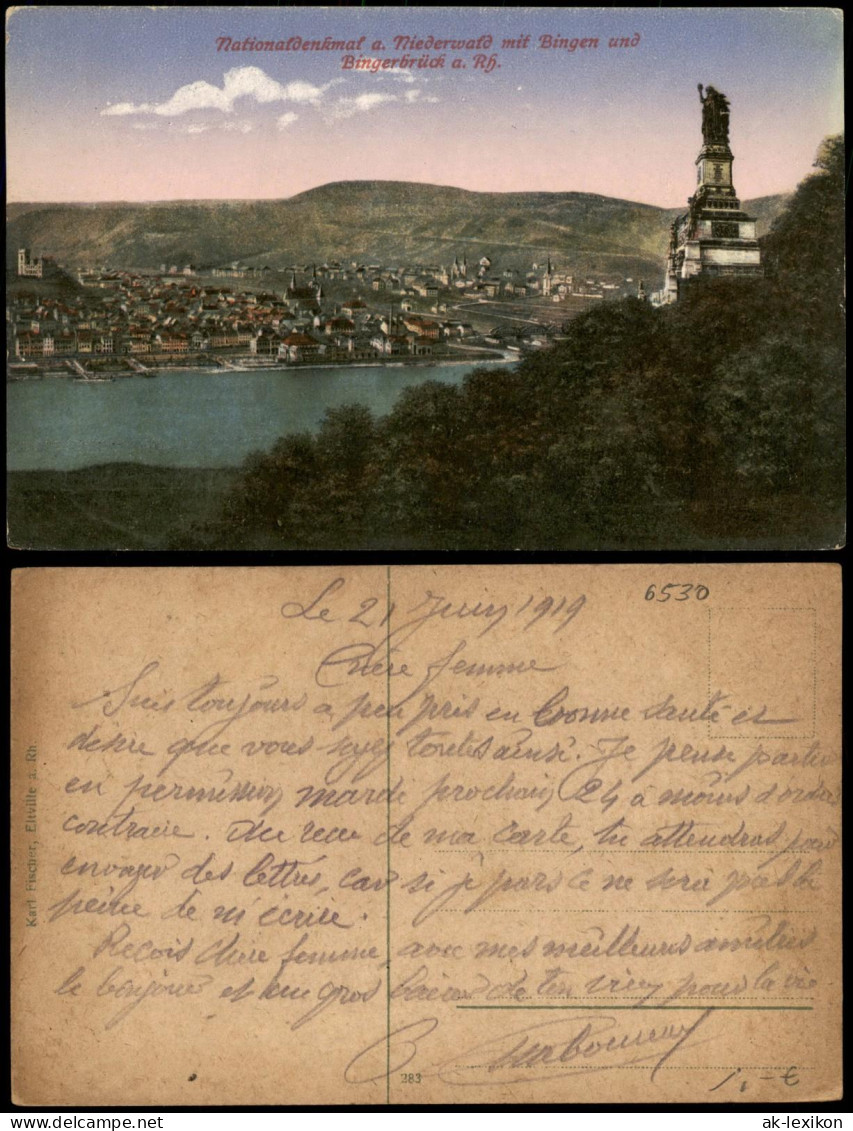 Nationaldenkmal a. Niederwald mit Bingen und
Bingerbrück a. Rh.
6530
Le 21 Juin 1919
Chère femme
Suis toujours a peu pris en bonne santé et
désire que vous soyez toutes ainsi. Je pense partir
en permission mardi prochain 24 à moins d'ordre
contraire. Au recu de ma carte, tu attendras pour
envoyer des lettres, car si je pars ce ne sera pas la
peine de m'écrire.
Reçois chère femme, avec mes meilleures amitiés
le bonjour et un gros baiser de ton vieux pour la vie.
B
Karl Fischer, Eltville a. Rh.
283
1,-€
delcampe.net
ak-lexikon